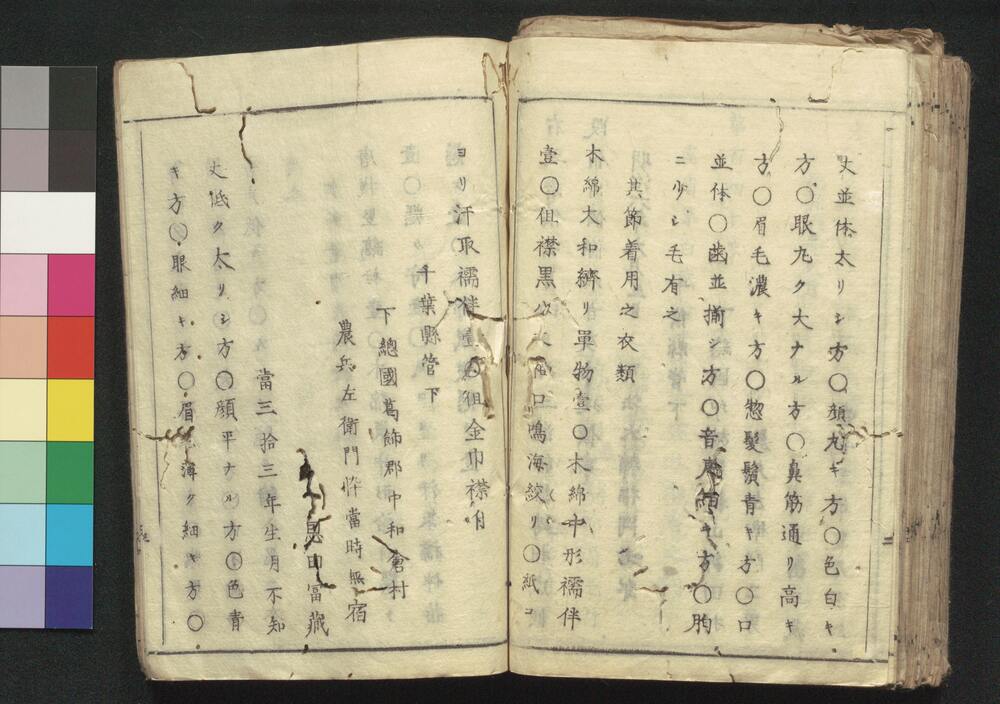 丈並体太リシ方〇顔丸キ方〇色白キ
方〇眼丸ク大ナル方〇鼻筋通リ高キ
方〇眉毛濃キ方〇惣髪鬚青キ方〇口
並体〇歯並揃シ方〇音 方〇胸
ニ少シ毛有之
其節着用之衣類
木綿大和縞リ單物壹〇木綿中形襦伴
壹〇但襟黒 口鳴海絞リ〇紙コ
ヨリ汗取襦伴壹〇但金巾襟付
千葉縣管下
下總國葛飾郡中和倉村
農兵左衛門忰當時無宿
冨藏
當三拾三年生月不知
丈低ク太リシ方〇顔平ナル方〇色青
キ方〇眼細キ方〇眉 薄ク細キ方〇